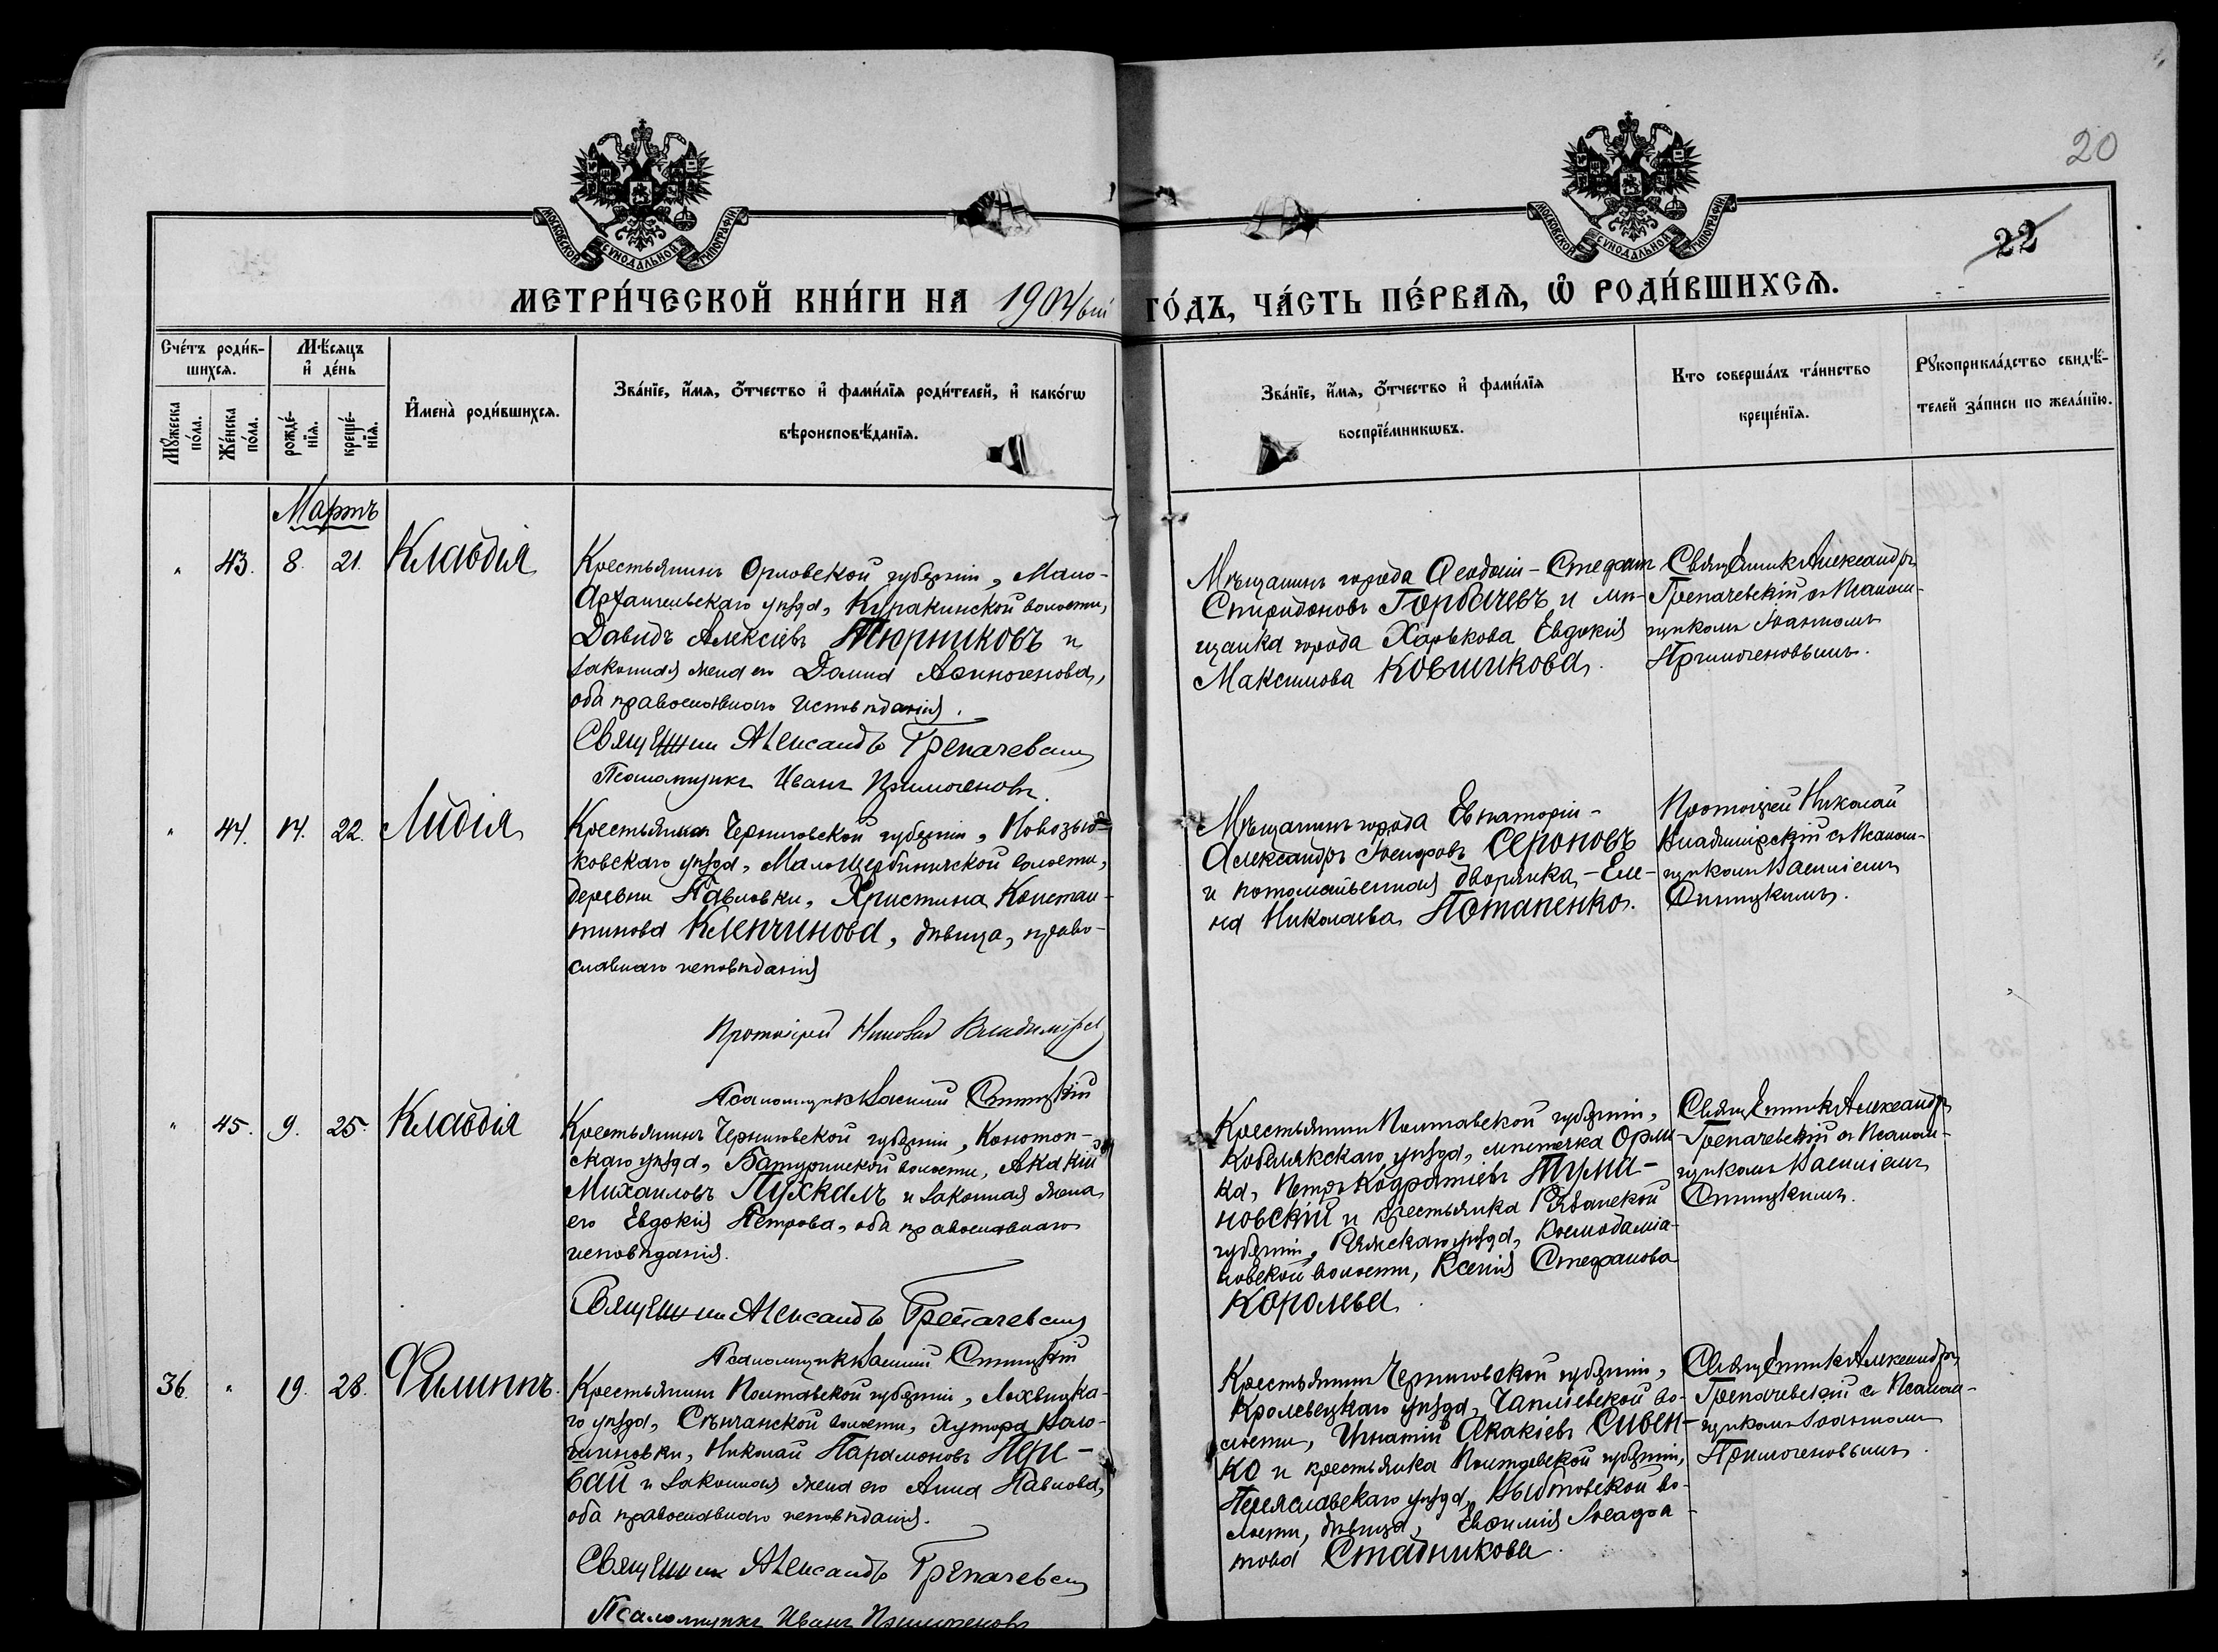 20
22
МОСКОВСКОЙ СѴНОДАЛЬНОЙ ТИПОГРАФІИ
МОСКОВСКОЙ СѴНОДАЛЬНОЙ ТИПОГРАФІИ
МЕТРИ́ЧЕСКОЙ КНИ́ГИ НА 1904/ый ГО́ДЪ, ЧА́СТЬ ПЕ́РВАѦ, Ѡ РОДИ́ВШИХСѦ.
Сче́тъ роди́в-
шихсѧ.
Мꙋ́жеска по́ла.
Же́нска по́ла.
Мѣ́сѧцъ и҆ де́нь
рожде́-
нїѧ.
креще́-
нїѧ.
И҆мена̀ роди́вшихсѧ.
Зва́нїе, и҆́мѧ, ѻ҆́тчество и҆ фами́лїѧ роди́телей, и҆ како́гѡ
вѣроисповѣ́данїѧ.
Зва́нїе, и҆́мѧ, ѻ҆́тчество и҆ фами́лїѧ
воспрїе́мникѡвъ.
Кто соверша́лъ та́инство
креще́нїѧ.
Рꙋкоприкла́дство свидѣ́-
телей за́писи по жела́нїю.
Мартъ
" 43. 8. 21. Клавдія
Крестьянинъ Орловской губерніи, Мало-
Архангельскаго уѣзда, Куракинской волости,
Давидъ Алексіевъ Тюрниковъ и
законная жена его Домна Аѳиногенова,
оба православнаго исповѣданія.
Священникъ Александръ Грепачевскій
Псаломщикъ Иванъ Примогеновъ.
Мѣщанинъ города Ѳеодосіи - Стефанъ
Спиридоновъ Горбачевъ и мѣ-
щанка города Харькова Евдокія
Максимова Ковшикова.
Священникъ Александръ
Грепачевскій съ Псалом-
щикомъ Іоанномъ
Примогеновымъ.
" 44. 14. 22. Лидія
Крестьянка Черниговской губерніи, Новозыб-
ковскаго уѣзда, Малощербиничской волости,
деревни Павловки, Христина Констан-
тинова Кленчинова, дѣвица, право-
славнаго исповѣданія
Протоіерей Николай Владимірскій
Псаломщикъ Василій
Мѣщанинъ города Евпаторіи -
Александръ Іосифовъ Сероновъ
и потомственная дворянка - Еле-
на Николаева Потапенко.
Протоіерей Николай
Владимірскій съ Псалом-
щикомъ Василіемъ
" 45. 9. 25. Клавдія
Крестьянинъ Черниговской губерніи, Конотоп-
скаго уѣзда, Батуринской волости, Акакій
Михаиловъ Пухкалъ и законная жена
его Евдокія Петрова, оба православнаго
исповѣданія.
Священникъ Александръ Грепачевскій
Псаломщикъ Василій
Крестьянинъ Полтавской губерніи,
Кобелякскаго уѣзда, мѣстечка Орли-
ка, Петръ Кодратіевъ Тума-
новскій и крестьянка Рязанской
губерніи, Ряжскаго уѣзда, Космодаміа-
новской волости, Ксенія Стефанова
Королева.
Священникъ Александръ
Грепачевскій съ Псалом-
щикомъ Василіемъ
36. " 19. 28. Филиппъ.
Крестьянинъ Полтавской губерніи, Лохвицка-
го уѣзда, Сѣнчанской волости, хутора
Николай Парамоновъ Пери-
вай и законная жена его Анна Павлова,
оба православнаго исповѣданія.
Священникъ Александръ Грепачевскій
Псаломщикъ Иванъ Примогеновъ
Крестьянинъ Черниговской губерніи,
Кролевецкаго уѣзда, Чаплієвской во-
лости, Игнатій Акакіевъ Сивен-
ко и крестьянка Полтавской губерніи,
Переяславскаго уѣзда, во-
лости, дѣвица, Евѳимія
Стадникова.
Священникъ Александръ
Грепачевскій съ Псалом-
щикомъ Іоанномъ
Примогеновымъ.